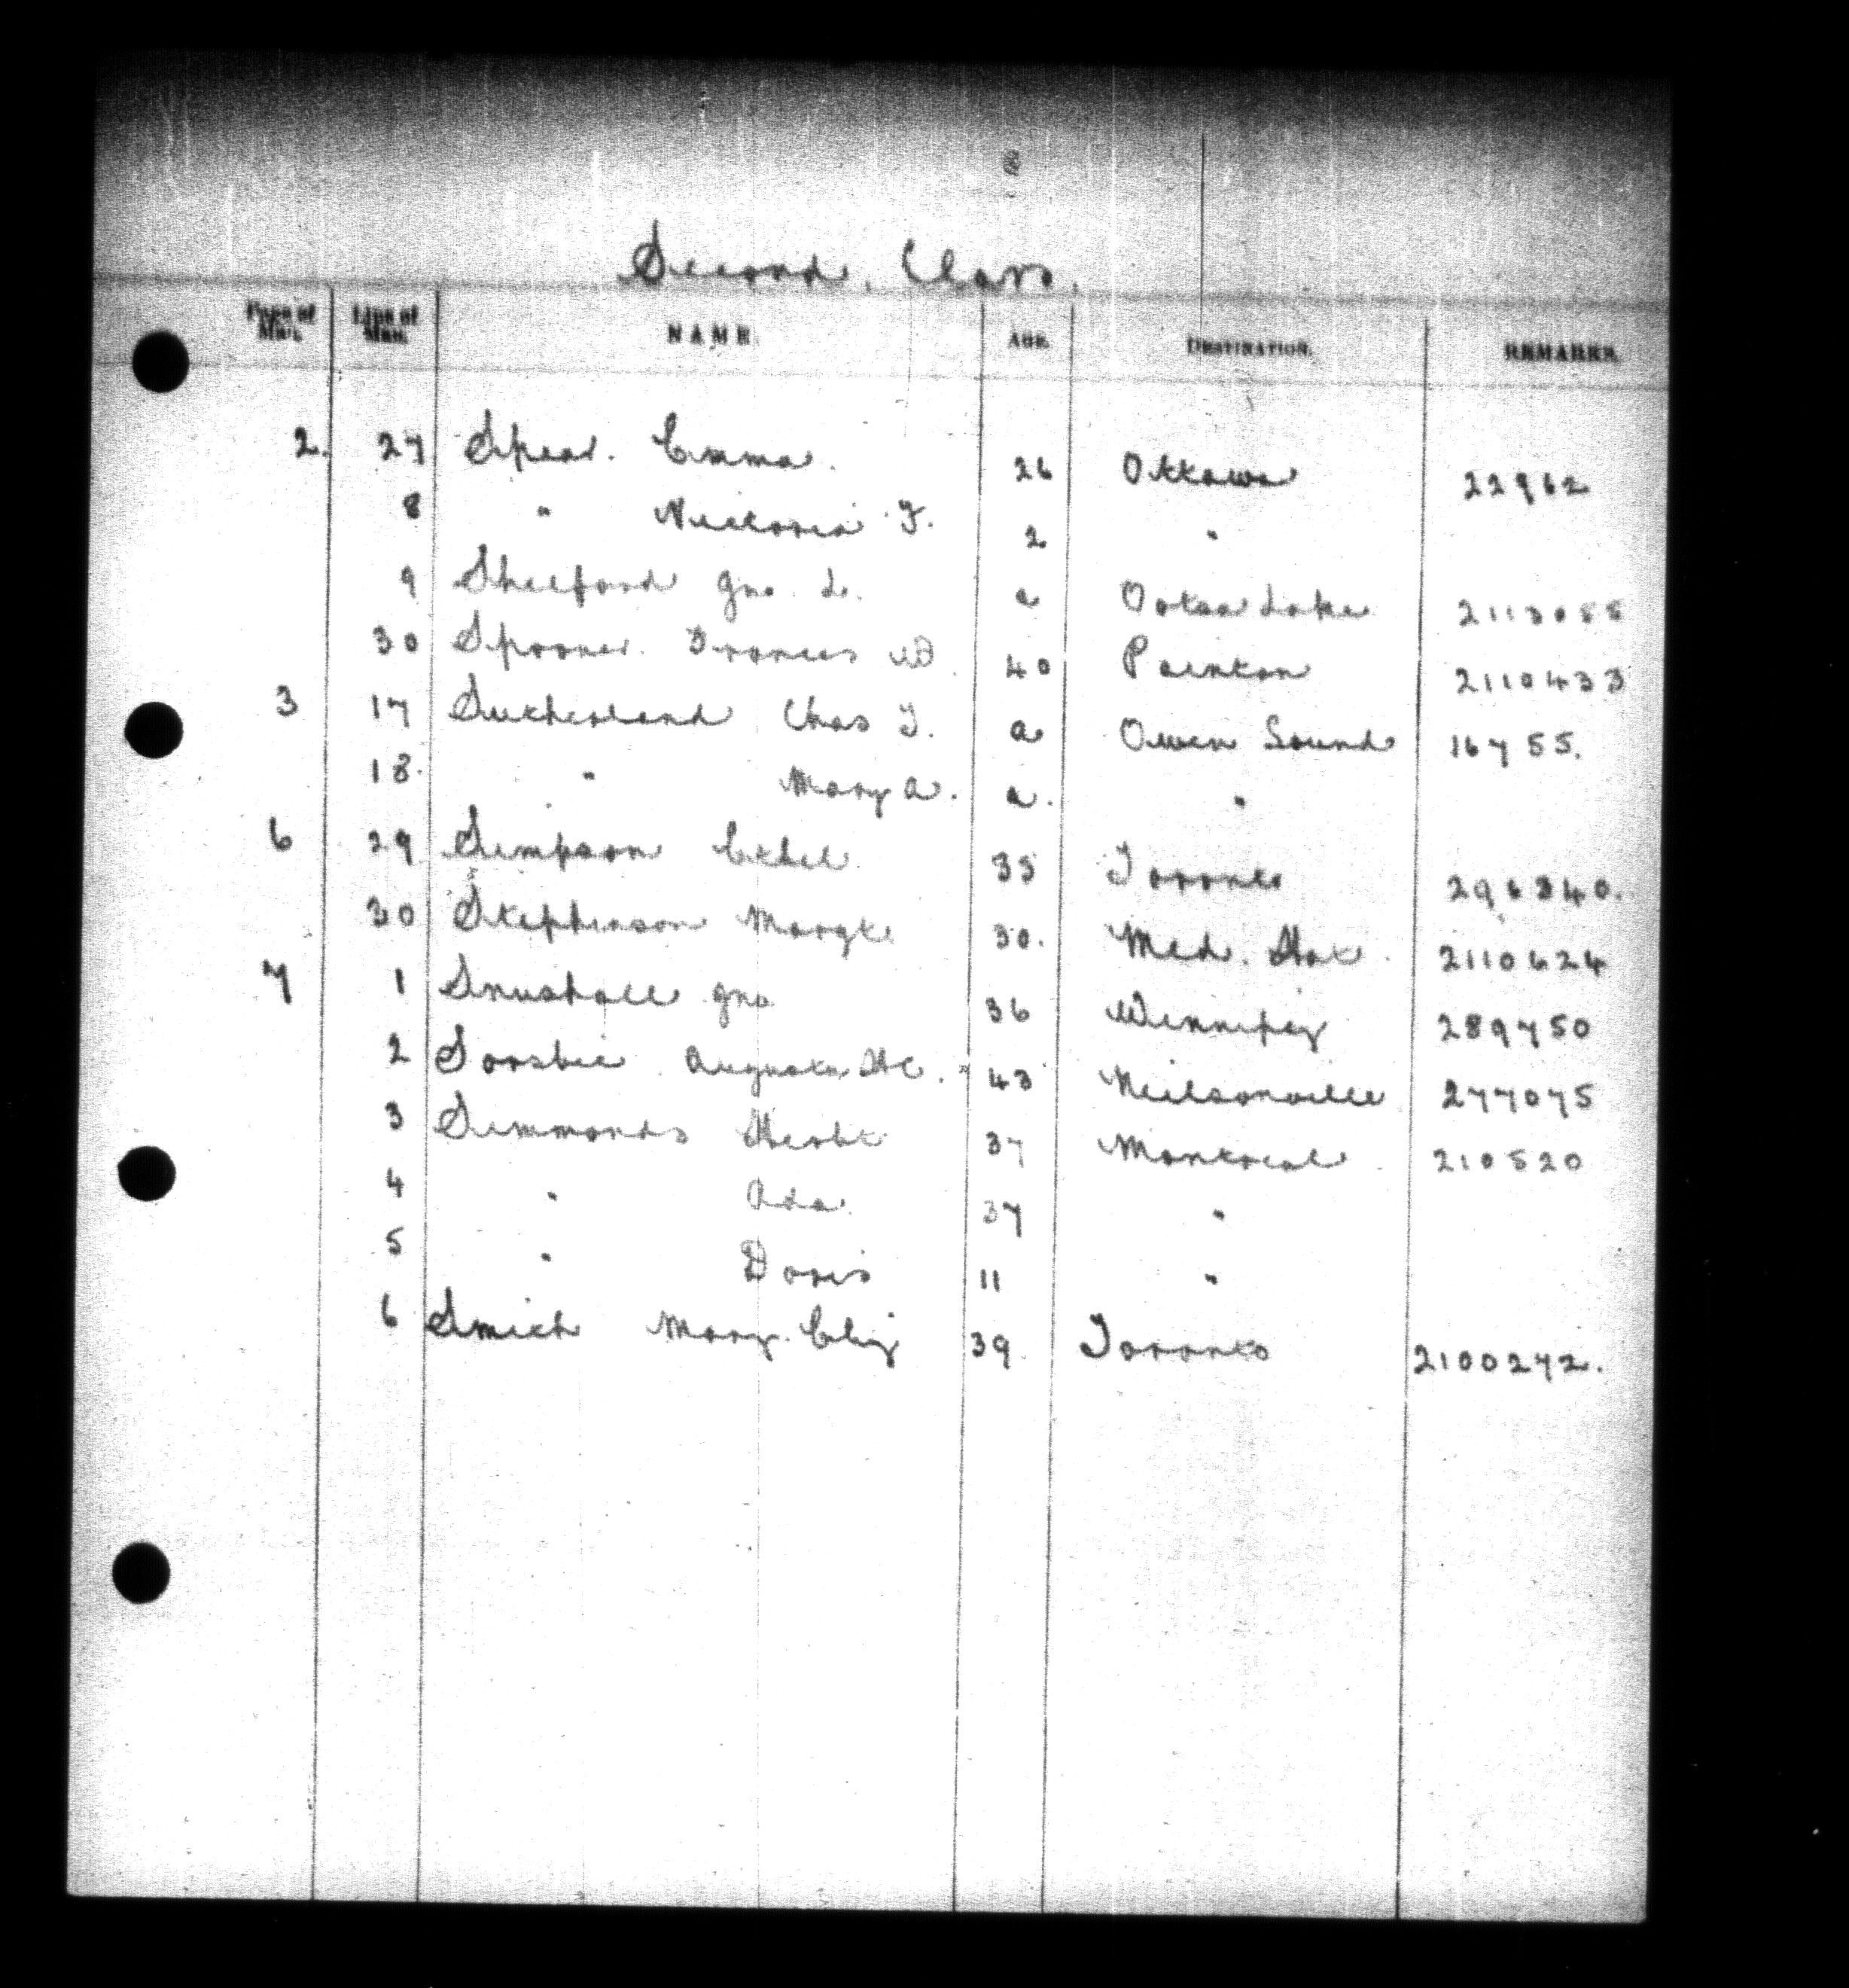 Second Class.
Page of Man. Line of Man. NAME. AGE. DESTINATION. REMARKS.
2. 27 Spear. Emma. 26 Ottawa 22962
8 " Victoria F. 2 "
9 Shelford Jno. L. a Ootsa Lake 2113055
30 Spooner. Frances W. 40 Pointon 2110433
3 17 Sutherland Chas J. a Owen Sound 16755.
18. " Mary A. a. "
6 29 Simpson Ethel 35 Toronto 296340.
30 Stephenson Margt. 30. Med. Hat. 2110624
7 1 Snushall Jno 36 Winnipeg 289750
2 Soosbie Augusta H C. 43 Neilsonville 277075
3 Simmonds Herbt 37 Montreal 210520
4 " Ada. 37 "
5 " Doris 11 "
6 Smith Mary. Eliz 39. Toronto 2100272.